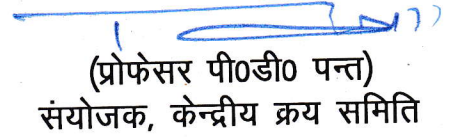 (प्रोफेसर पी0डी0 पन्त)
संयोजक, केन्द्रीय क्रय समिति